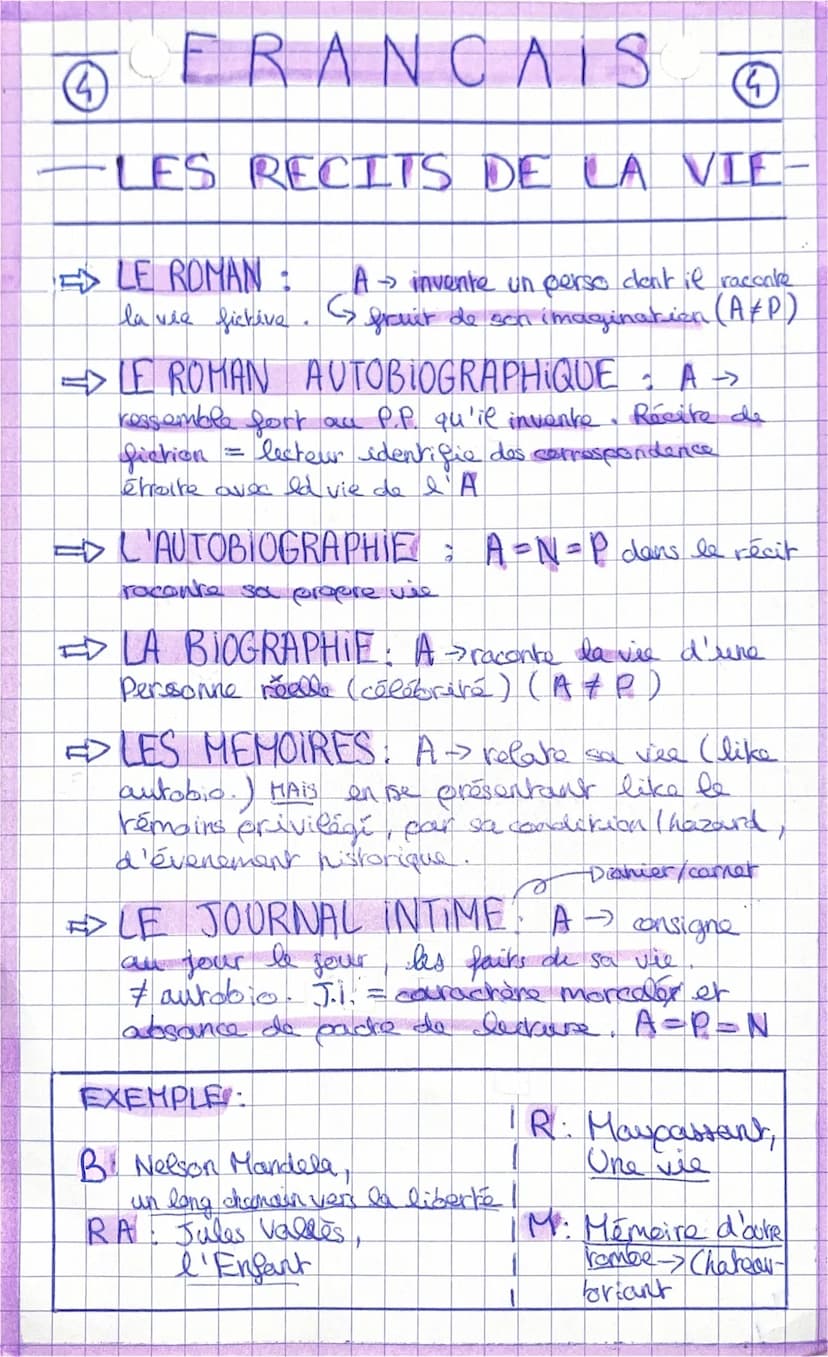 FRANCAIS
4 4
LES RECITS DE LA VIE
⇒ LE ROMAN : A → invente un perso dont il raconte
la vie fictive. ↳ fruit de son imagination (A ≠ P)
⇒ LE ROMAN AUTOBIOGRAPHIQUE : A →
ressemble fort au P.P. qu'il invente. Récite de
fiction = lecteur identifie des correspondance
étroite avec la vie de l'A
⇒ L'AUTOBIOGRAPHIE : A = N = P dans le récit
raconte sa propre vie
⇒ LA BIOGRAPHIE : A → raconte la vie d'une
Personne réelle (célébrité) (A ≠ P)
⇒ LES MEMOIRES : A → relate sa vie (like
autobio.) MAIS en se présentant like le
témoins privilégi, par sa condition / hazard,
d'évenement historique.
Diahier/carnet
⇒ LE JOURNAL INTIME : A → consigne
au jour le jour, les faits de sa vie.
≠ autobio. J.I. = caractère morcelé et
absance de pacte de lecture. A = P = N
EXEMPLE :
B : Nelson Mandela,
un long chemain vers la liberté
RA : Jules Vallès,
l'Enfant
R : Maupassant,
Une vie
M : Mémoire d'outre
tombe → Chateau-
briant